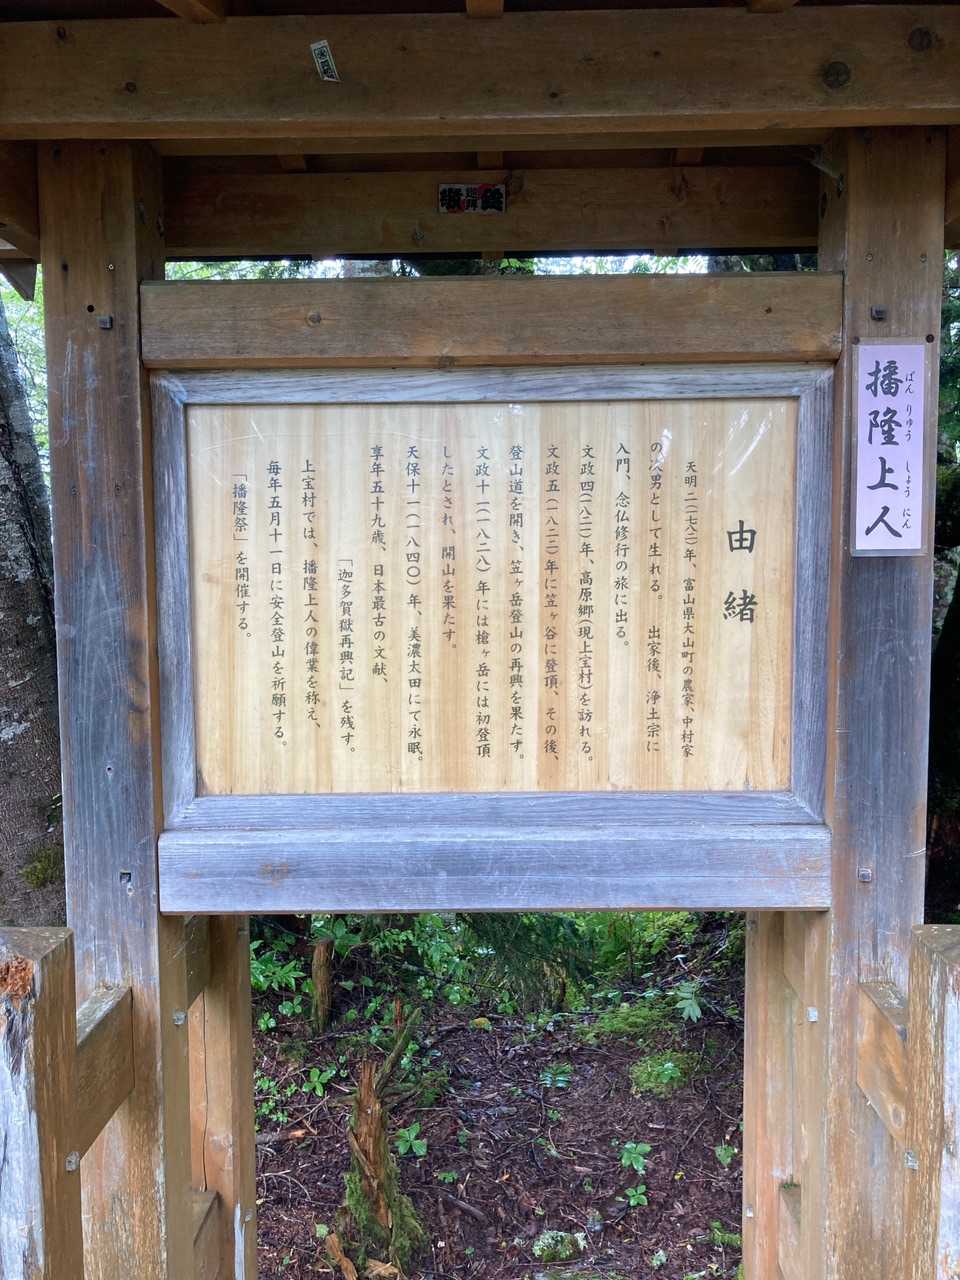 播隆上人
ばんりゅうしょうにん
由緒
天明二(一七八二)年、富山県大山町の農家、中村家
の次男として生れる。出家後、浄土宗に
入門、念仏修行の旅に出る。
文政四(一八二一)年、高原郷(現上宝村)を訪れる。
文政五(一八二二)年に笠ヶ谷に登頂、その後、
登山道を開き、笠ヶ岳登山の再興を果たす。
文政十一(一八二八)年には槍ヶ岳には初登頂
したとされ、開山を果たす。
天保十一(一八四〇)年、美濃太田にて永眠。
享年五十九歳、日本最古の文献、
「迦多賀嶽再興記」を残す。
上宝村では、播隆上人の偉業を称え、
毎年五月十一日に安全登山を祈願する。
「播隆祭」を開催する。